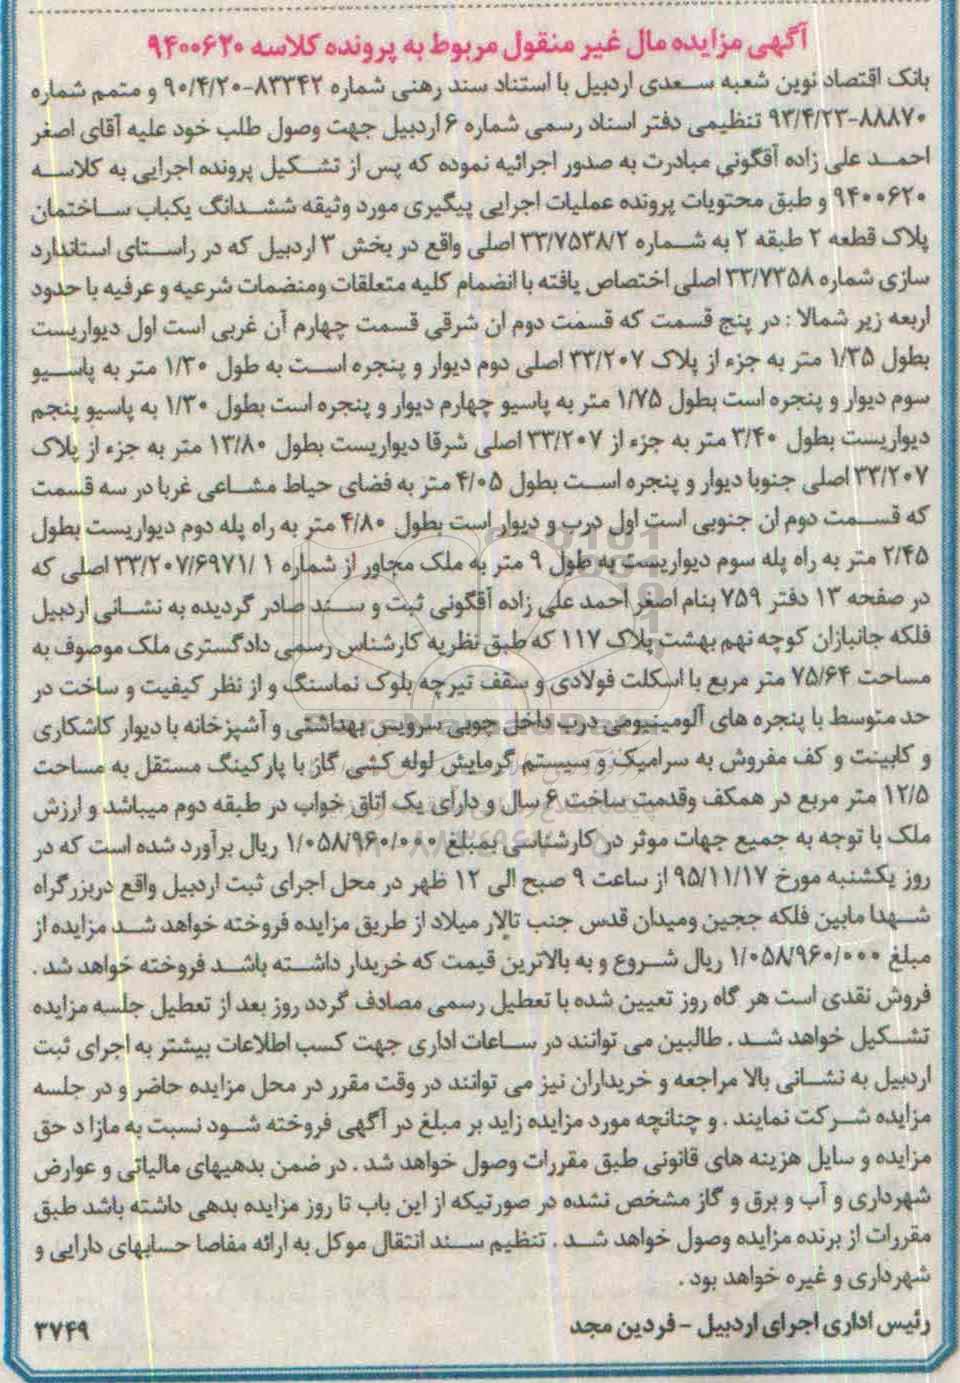 آگهی مزایده مال غیر منقول مربوط به پرونده کلاسه ۹۴۰۰۶۲۰
بانک اقتصاد نوین شعبه سعدی اردبیل با استناد سند رهنی شماره ۸۳۳۴۲-۹۰/۴/۲۰ و متمم شماره
۸۸۸۷۰-۹۳/۴/۲۳ تنظیمی دفتر اسناد رسمی شماره ۶ اردبیل جهت وصول طلب خود علیه آقای اصغر
احمد علی زاده آقگونی مبادرت به صدور اجرائیه نموده که پس از تشکیل پرونده اجرایی به کلاسه
۹۴۰۰۶۲۰ و طبق محتویات پرونده عملیات اجرایی پیگیری مورد وثیقه ششدانگ یکباب ساختمان
پلاک قطعه ۲ طبقه ۲ به شماره ۳۳/۷۵۳۸/۲ اصلی واقع در بخش ۳ اردبیل که در راستای استاندارد
سازی شماره ۳۳/۷۳۵۸ اصلی اختصاص یافته با انضمام کلیه متعلقات ومنضمات شرعیه و عرفیه با حدود
اربعه زیر شمالا : در پنج قسمت که قسمت دوم ان شرقی قسمت چهارم آن غربی است اول دیواریست
بطول ۱/۳۵ متر به جزء از پلاک ۳۳/۲۰۷ اصلی دوم دیوار و پنجره است به طول ۱/۳۰ متر به پاسیو
سوم دیوار و پنجره است بطول ۱/۷۵ متر به پاسیو چهارم دیوار و پنجره است بطول ۱/۳۰ به پاسیو پنجم
دیواریست بطول ۳/۴۰ متر به جزء از ۳۳/۲۰۷ اصلی شرقا دیواریست بطول ۱۳/۸۰ متر به جزء از پلاک
۳۳/۲۰۷ اصلی جنوبا دیوار و پنجره است بطول ۴/۰۵ متر به فضای حیاط مشاعی غربا در سه قسمت
که قسمت دوم ان جنوبی است اول درب و دیوار است بطول ۴/۸۰ متر به راه پله دوم دیواریست بطول
۲/۴۵ متر به راه پله سوم دیواریست به طول ۹ متر به ملک مجاور از شماره ۱ /۳۳/۲۰۷/۶۹۷۱ اصلی که
در صفحه ۱۳ دفتر ۷۵۹ بنام اصغر احمد علی زاده آقگونی ثبت و سند صادر گردیده به نشانی اردبیل
فلکه جانبازان کوچه نهم بهشت پلاک ۱۱۷ که طبق نظریه کارشناس رسمی دادگستری ملک موصوف به
مساحت ۷۵/۶۴ متر مربع با اسکلت فولادی و سقف تیرچه بلوک نماسنگ و از نظر کیفیت و ساخت در
حد متوسط با پنجره های آلومینیومی درب داخل چوبی سرویس بهداشتی و آشپزخانه با دیوار کاشکاری
و کابینت و کف مفروش به سرامیک و سیستم گرمایش لوله کشی گاز با پارکینگ مستقل به مساحت
۱۲/۵ متر مربع در همکف وقدمت ساخت ۶ سال و دارای یک اتاق خواب در طبقه دوم میباشد و ارزش
ملک با توجه به جمیع جهات موثر در کارشناسی بمبلغ ۱/۰۵۸/۹۶۰/۰۰۰ ریال برآورد شده است که در
روز یکشنبه مورخ ۹۵/۱۱/۱۷ از ساعت ۹ صبح الی ۱۲ ظهر در محل اجرای ثبت اردبیل واقع دربزرگراه
شهدا مابین فلکه ججین ومیدان قدس جنب تالار میلاد از طریق مزایده فروخته خواهد شد مزایده از
مبلغ ۱/۰۵۸/۹۶۰/۰۰۰ ریال شروع و به بالاترین قیمت که خریدار داشته باشد فروخته خواهد شد .
فروش نقدی است هر گاه روز تعیین شده با تعطیل رسمی مصادف گردد روز بعد از تعطیل جلسه مزایده
تشکیل خواهد شد . طالبین می توانند در ساعات اداری جهت کسب اطلاعات بیشتر به اجرای ثبت
اردبیل به نشانی بالا مراجعه و خریداران نیز می توانند در وقت مقرر در محل مزایده حاضر و در جلسه
مزایده شرکت نمایند . و چنانچه مورد مزایده زاید بر مبلغ در آگهی فروخته شود نسبت به مازا د حق
مزایده و سایل هزینه های قانونی طبق مقررات وصول خواهد شد . در ضمن بدهیهای مالیاتی و عوارض
شهرداری و آب و برق و گاز مشخص نشده در صورتیکه از این باب تا روز مزایده بدهی داشته باشد طبق
مقررات از برنده مزایده وصول خواهد شد . تنظیم سند انتقال موکل به ارائه مفاصا حسابهای دارایی و
شهرداری و غیره خواهد بود .
رئیس اداری اجرای اردبیل - فردین مجد
۳۷۴۹